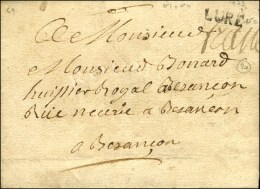 LURE
A Monsieur
Monsieur Bonard
huissier Royal a Besançon
Rüe neuve a Besançon
a Besançon